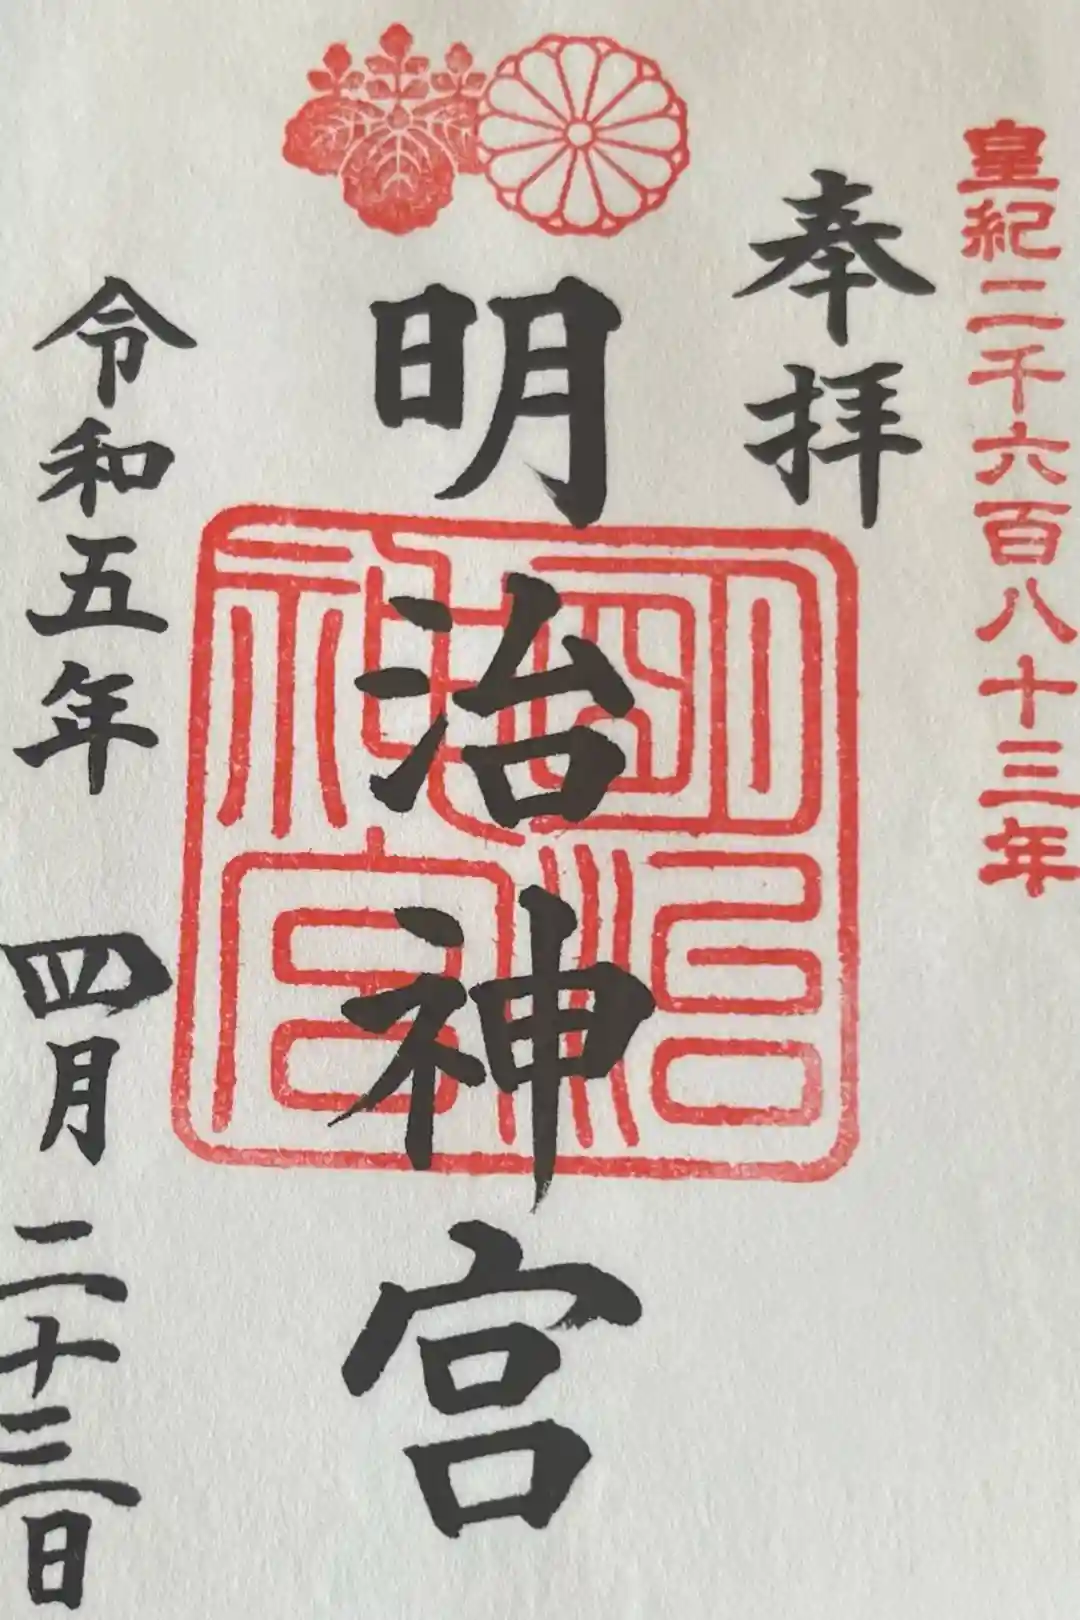 皇紀二千六百八十三年
奉拝
明治神宮
明治神宮
令和五年 四月 二十三日